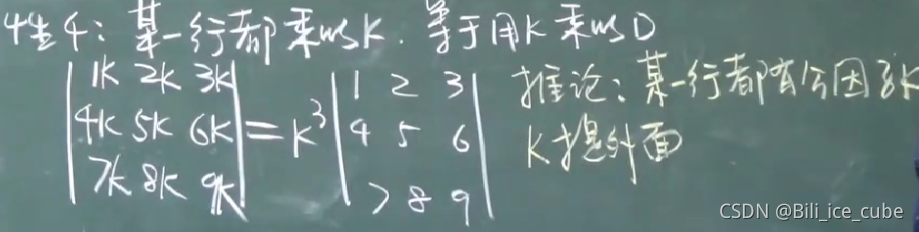 性4：某一行都乘以K. 等于用K乘以D
|1K 2K 3K|
|4K 5K 6K|
|7K 8K 9K|
=K³
|1 2 3|
|4 5 6|
|7 8 9|
推论：某一行都有公因子K
K提外面
CSDN @Bili_ice_cube